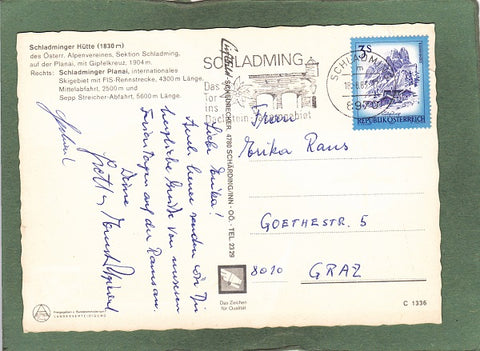 Schladminger Hütte (1830 m)
des Österr. Alpenvereines, Sektion Schladming,
auf der Planai, mit Gipfelkreuz, 1904 m.
Rechts: Schladminger Planai, internationales
Skigebiet mit FIS-Rennstrecke, 4300 m Länge,
Mittelabfahrt, 2500 m und
Sepp Streicher-Abfahrt, 5600 m Länge.
Liebe Erika!
Auch heuer senden wir Dir
herzliche Grüße von unseren
Ferientagen auf der Ramsau
Deine
SCHÄRDING/INN - OÖ. - TEL. 23 29
4780
SCHLADMING
Das
Tor
ins
Dachstein
SCHLADMING
8970
3 S
REPUBLIK ÖSTERREICH
Frau
Erika Raus
GOETHESTR. 5
8010 GRAZ
Das Zeichen
für Qualität
C 1336